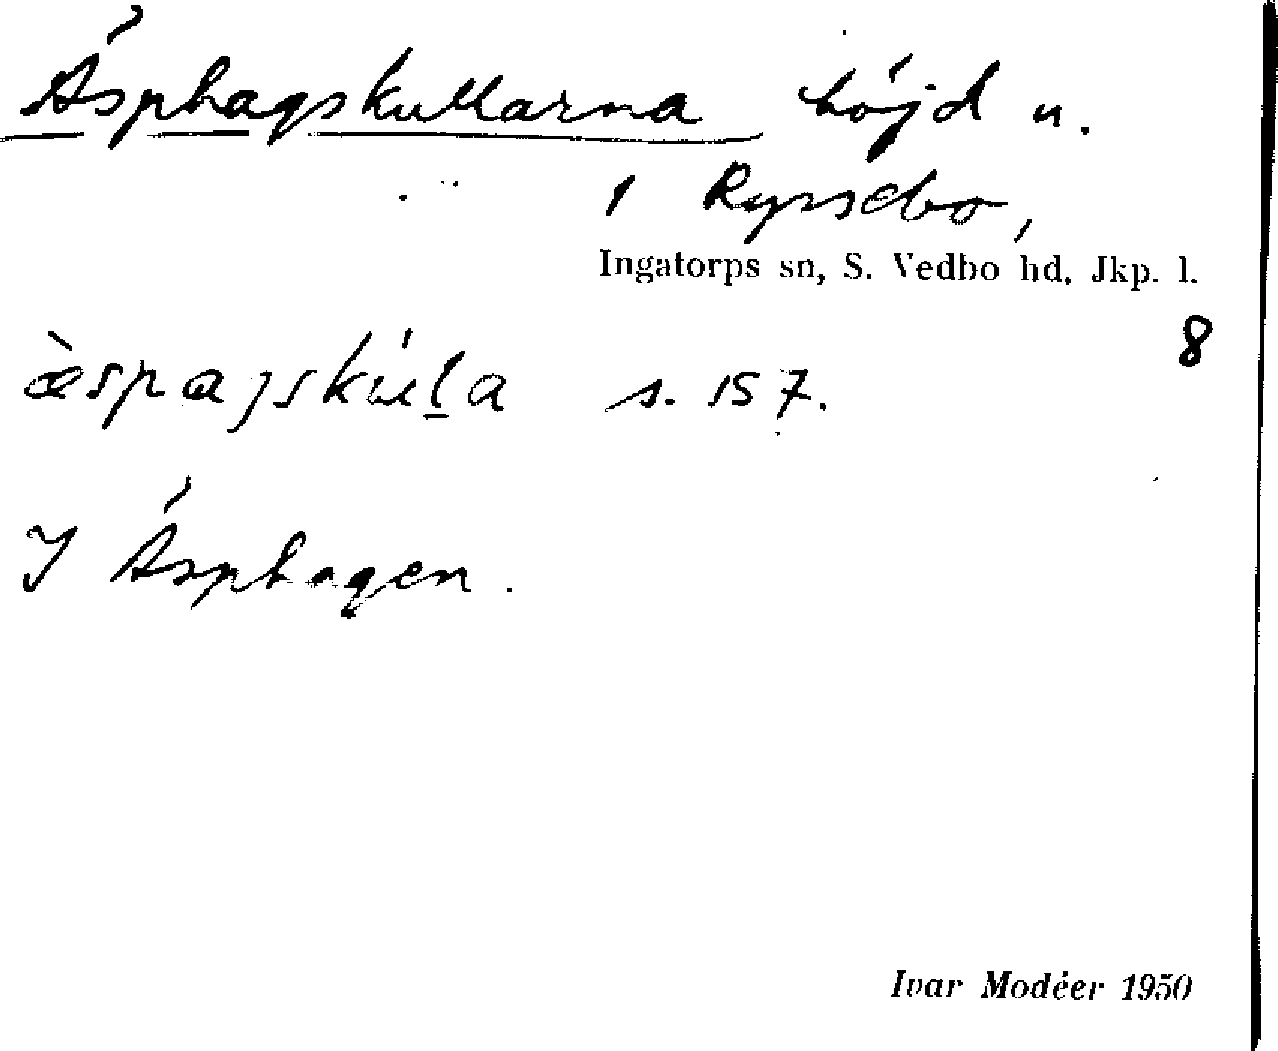 Äsphagskullarna höjd u.
1 Ryssebo,
Ingatorps sn, S. Vedbo hd, Jkp. l.
8
s. 157.
I Äsphagen.
Ivar Modéer 1950